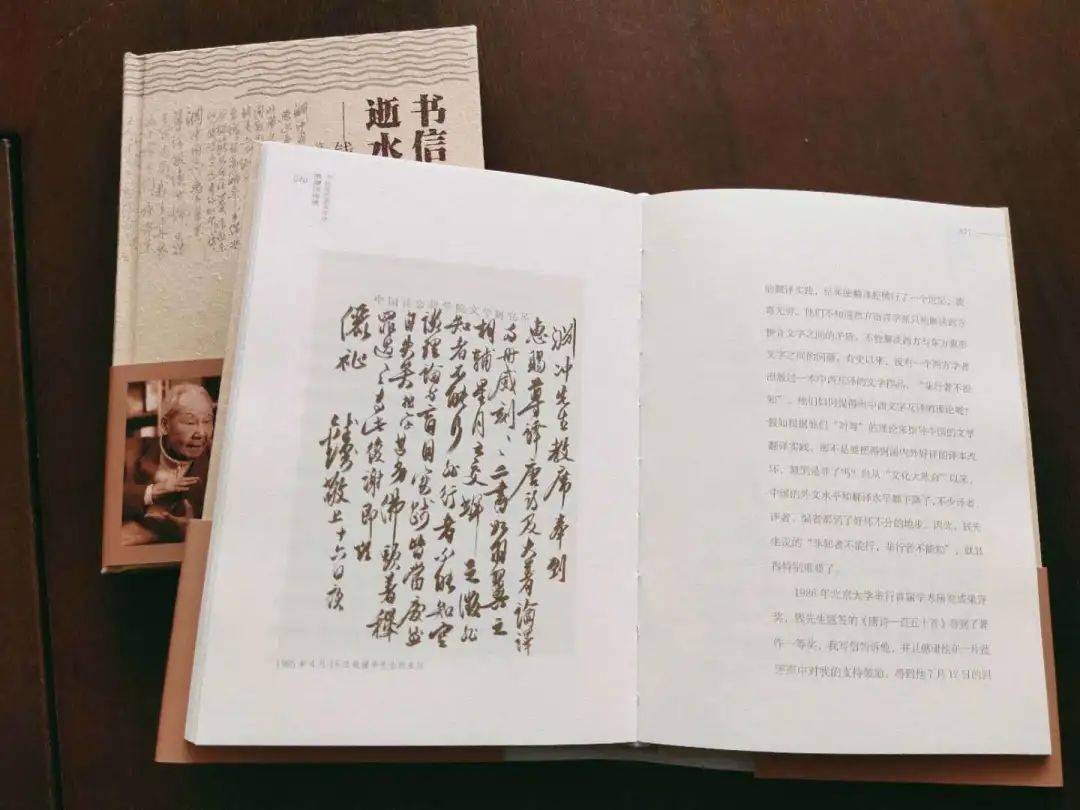 书信
逝水
——钱
中国社会科学院文学研究所
渊冲先生教席奉到
惠赐尊译唐诗及大著论译
两册感刻感刻二书如羽翼之
相辅星月之交辉足徵非
知者不能行非行者不能知空
谈理论与盲目实践皆当废然
自失矣拙字甚劣佛头著秽
罪过罪过专此复谢即颂
俪祉
钱锺书敬上十六日夜
的翻译实践，
毫无所。他们不知道西方语言学派只能解决西方
拼音文字之间的矛盾，不能解决西方与东方象形
文字之间的问题。有史以来，没有一个西方学者
出版过一本中西互译的文学作品，“非行者不能
知”，他们如何提得出中西文字互译的理论呢？
假如根据他们“对等”的理论来指导中国的文学
翻译实践，那不是要把得到国内外好评的译本改
坏，颠倒是非了吗？自从“文化大革命”以来，
中国的外文水平和翻译水平都下降了，不少译者、
评者、编者都到了好坏不分的地步。因此，钱先
生说的“非知者不能行，非行者不能知”，就显
得特别重要了。
1986年北京大学举行首届学术研究成果评
奖，钱先生题签的《唐诗一百五十首》得到了著
作一等奖，我写信告诉他，并且感谢他在一片批
评声中对我的支持鼓励。得到他7月12日的回